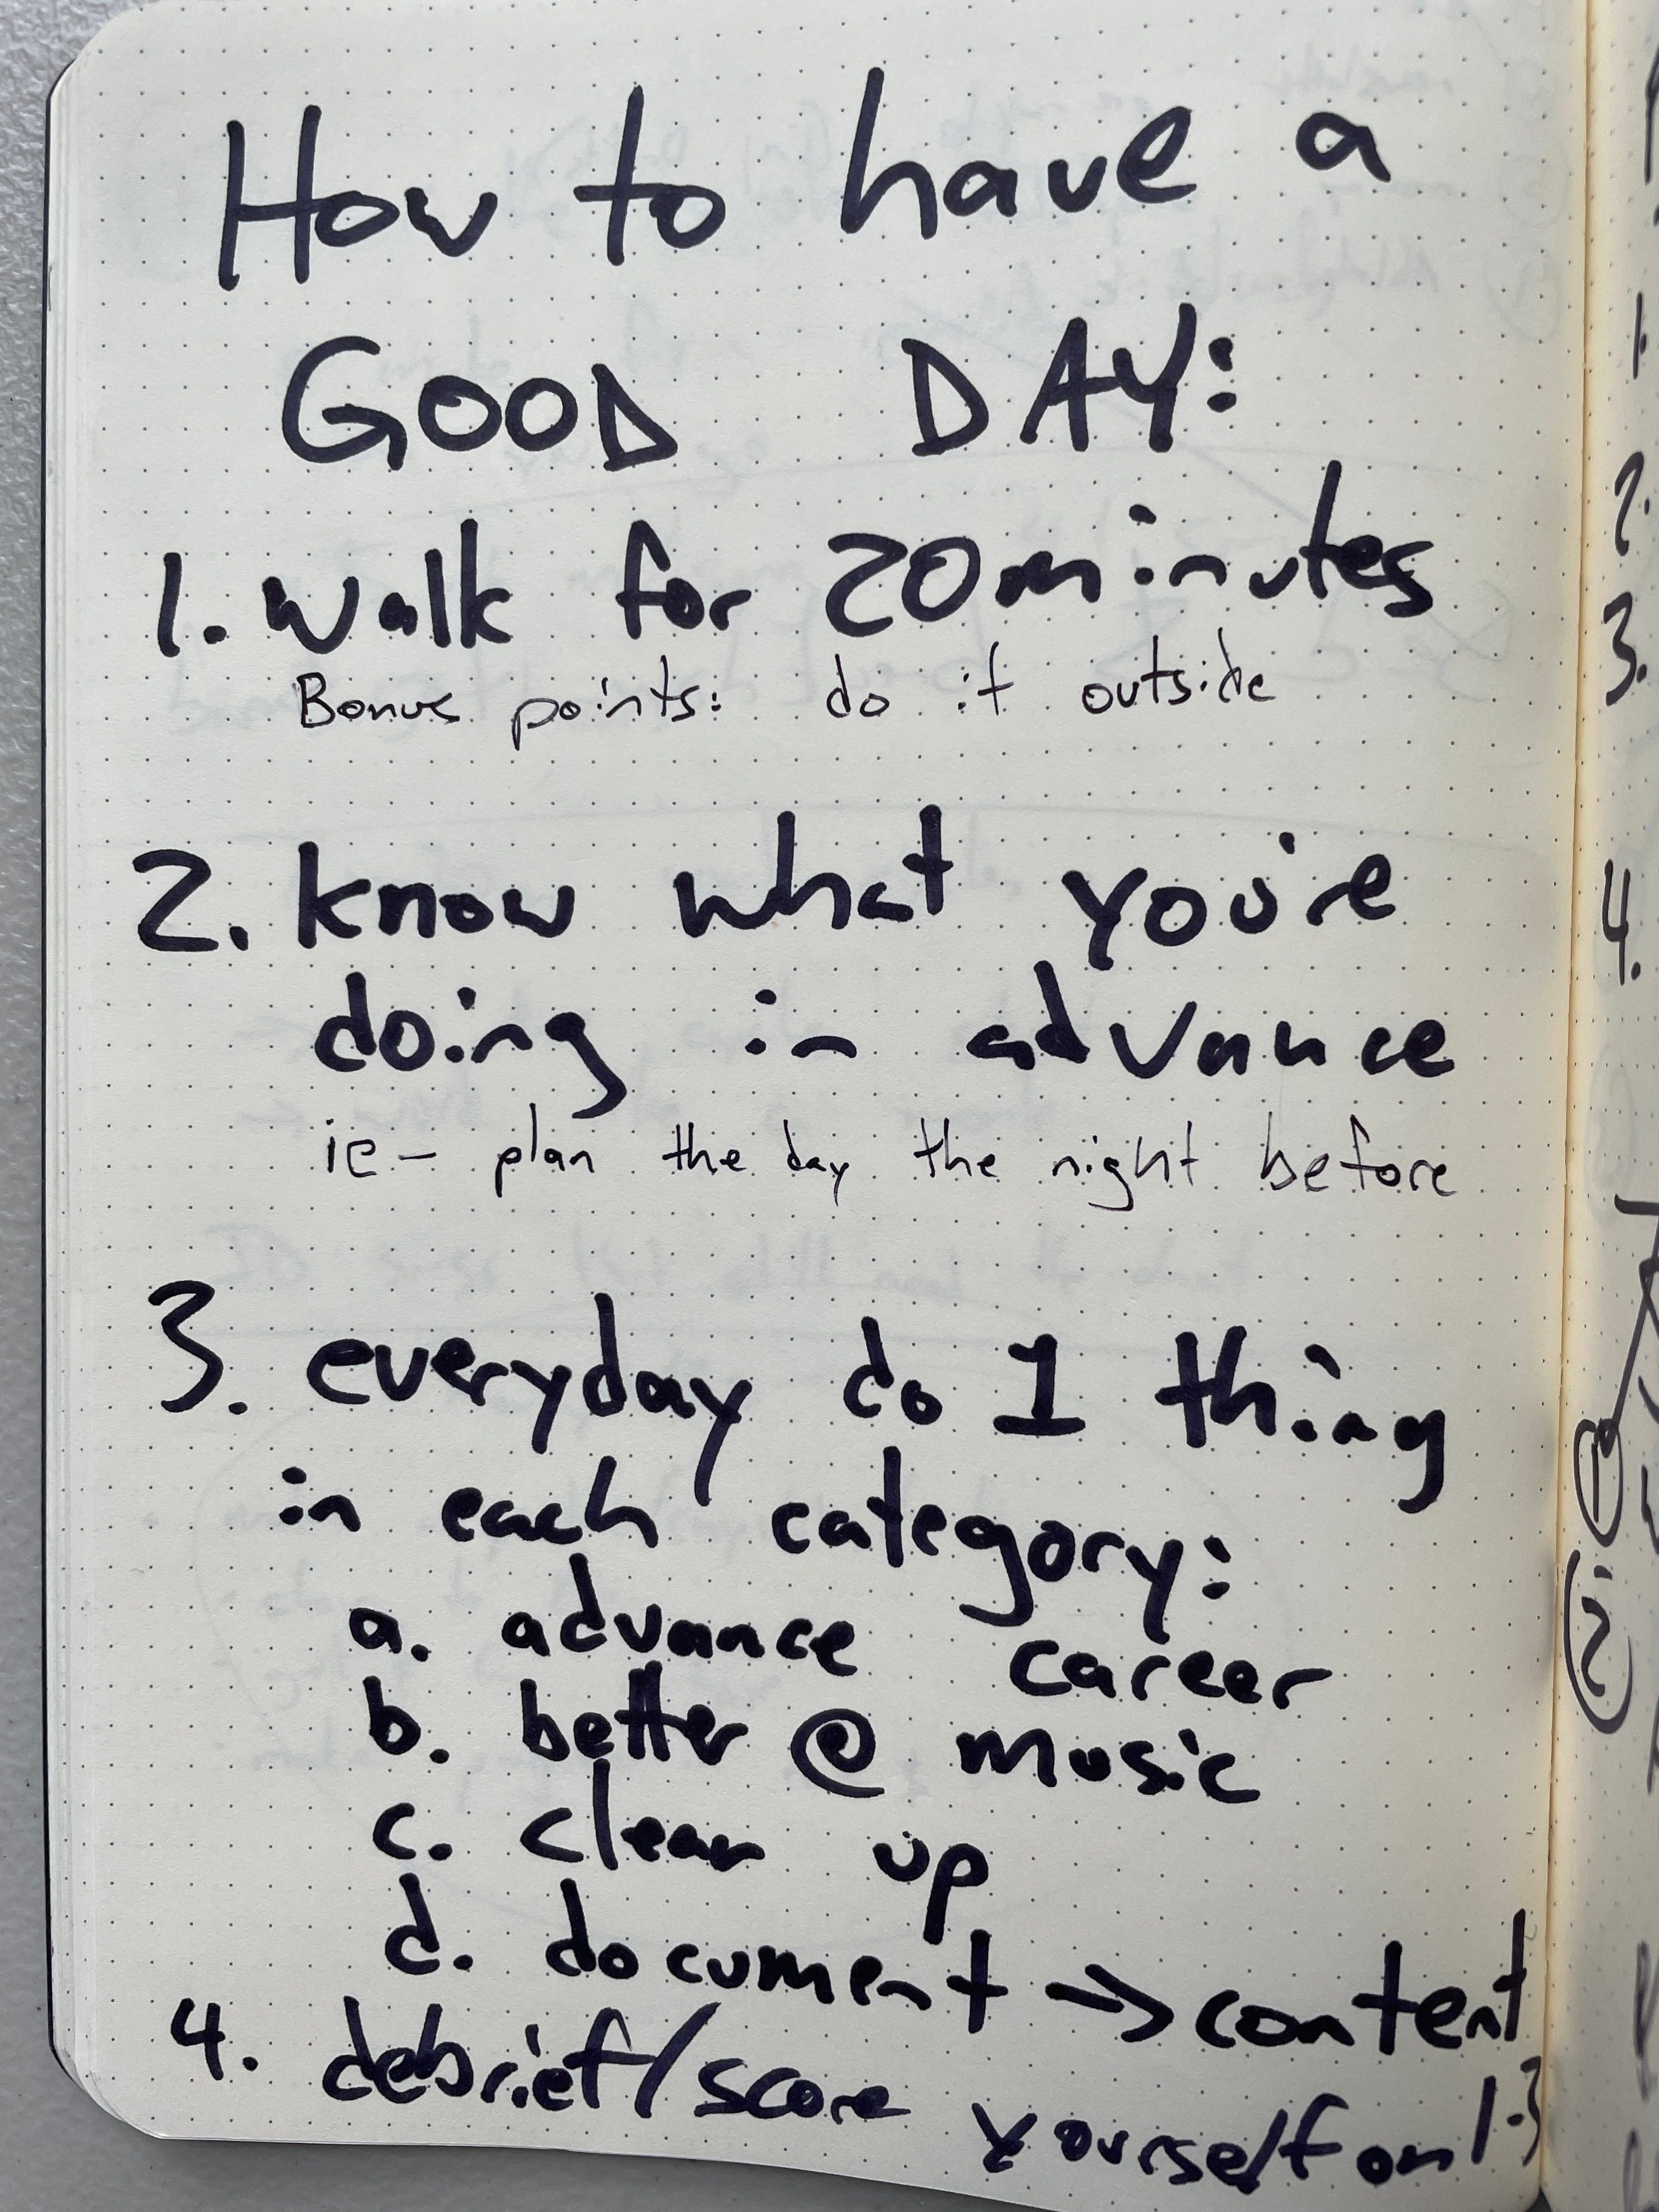 How to have a
GOOD DAY:
1. Walk for 20 minutes
Bonus points: do it outside
2. know what you're
doing in advance
ie - plan the day the night before
3. everyday do 1 thing
in each category:
a. advance career
b. better @ music
c. clean up
d. document → content
4. debrief/score yourself on 1-3
1.
2.
3.
4.
1
2